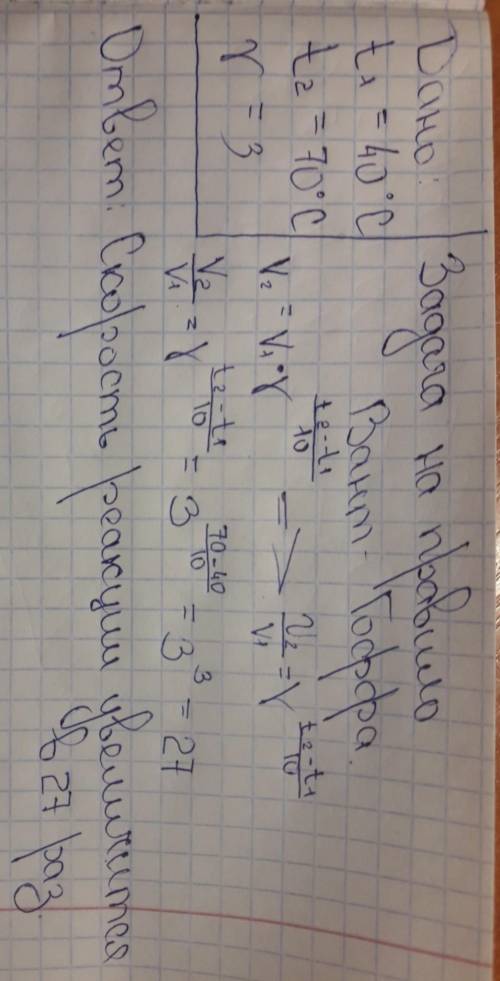 Дано:
t₁ = 40°C
t₂ = 70°C
γ = 3
Задача на правило
Вант-Гоффа.
V₂ = V₁ · γ^((t₂ - t₁)/10) => V₂/V₁ = γ^((t₂ - t₁)/10)
V₂/V₁ = γ^((t₂ - t₁)/10) = 3^((70 - 40)/10) = 3³ = 27
Ответ: Скорость реакции увеличится
в 27 раз.